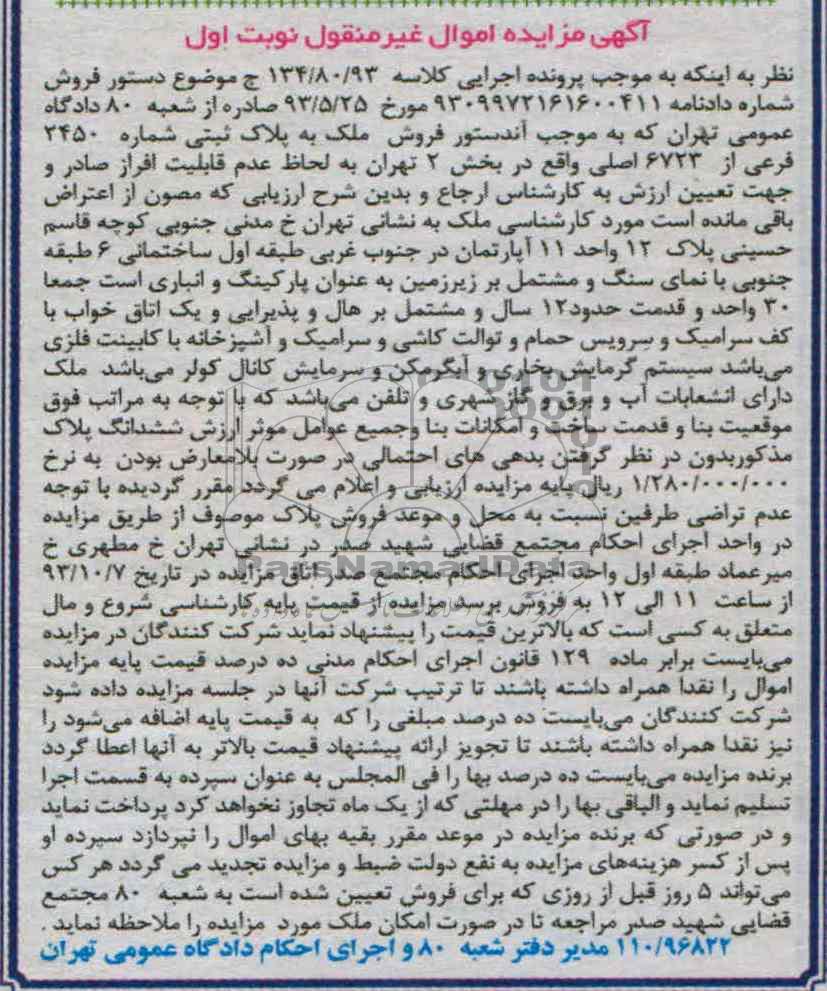 آگهی مزایده اموال غیرمنقول نوبت اول
نظر به اینکه به موجب پرونده اجرایی کلاسه ۱۳۴/۸۰/۹۳ ج موضوع دستور فروش
شماره دادنامه ۹۳۰۹۹۷۲۱۶۱۶۰۰۴۱۱ مورخ ۹۳/۵/۲۵ صادره از شعبه ۸۰ دادگاه
عمومی تهران که به موجب آندستور فروش ملک به پلاک ثبتی شماره ۲۴۵۰
فرعی از ۶۷۲۳ اصلی واقع در بخش ۲ تهران به لحاظ عدم قابلیت افراز صادر و
جهت تعیین ارزش به کارشناس ارجاع و بدین شرح ارزیابی که مصون از اعتراض
باقی مانده است مورد کارشناسی ملک به نشانی تهران خ مدنی جنوبی کوچه قاسم
حسینی پلاک ۱۲ واحد ۱۱ آپارتمان در جنوب غربی طبقه اول ساختمانی ۶ طبقه
جنوبی با نمای سنگ و مشتمل بر زیرزمین به عنوان پارکینگ و انباری است جمعا
۳۰ واحد و قدمت حدود۱۲ سال و مشتمل بر هال و پذیرایی و یک اتاق خواب با
کف سرامیک و سرویس حمام و توالت کاشی و سرامیک و آشپزخانه با کابینت فلزی
می‌باشد سیستم گرمایش بخاری و آبگرمکن و سرمایش کانال کولر می‌باشد ملک
دارای انشعابات آب و برق و گاز شهری و تلفن می‌باشد که با توجه به مراتب فوق
موقعیت بنا و قدمت ساخت و امکانات بنا وجمیع عوامل موثر ارزش ششدانگ پلاک
مذکوربدون در نظر گرفتن بدهی های احتمالی در صورت بلامعارض بودن به نرخ
۱/۲۸۰/۰۰۰/۰۰۰ ریال پایه مزایده ارزیابی و اعلام می گردد مقرر گردیده با توجه
عدم تراضی طرفین نسبت به محل و موعد فروش پلاک موصوف از طریق مزایده
در واحد اجرای احکام مجتمع قضایی شهید صدر در نشانی تهران خ مطهری خ
میرعماد طبقه اول واحد اجرای احکام مجتمع صدر اتاق مزایده در تاریخ ۹۳/۱۰/۷
از ساعت ۱۱ الی ۱۲ به فروش برسد مزایده از قیمت پایه کارشناسی شروع و مال
متعلق به کسی است که بالاترین قیمت را پیشنهاد نماید شرکت کنندگان در مزایده
می‌بایست برابر ماده ۱۲۹ قانون اجرای احکام مدنی ده درصد قیمت پایه مزایده
اموال را نقدا همراه داشته باشند تا ترتیب شرکت آنها در جلسه مزایده داده شود
شرکت کنندگان می‌بایست ده درصد مبلغی را که به قیمت پایه اضافه می‌شود را
نیز نقدا همراه داشته باشند تا تجویز ارائه پیشنهاد قیمت بالاتر به آنها اعطا گردد
برنده مزایده می‌بایست ده درصد بها را فی المجلس به عنوان سپرده به قسمت اجرا
تسلیم نماید و الباقی بها را در مهلتی که از یک ماه تجاوز نخواهد کرد پرداخت نماید
و در صورتی که برنده مزایده در موعد مقرر بقیه بهای اموال را نپردازد سپرده او
پس از کسر هزینه‌های مزایده به نفع دولت ضبط و مزایده تجدید می گردد هر کس
می‌تواند ۵ روز قبل از روزی که برای فروش تعیین شده است به شعبه ۸۰ مجتمع
قضایی شهید صدر مراجعه تا در صورت امکان ملک مورد مزایده را ملاحظه نماید .
۱۱۰/۹۶۸۲۲ مدیر دفتر شعبه ۸۰ و اجرای احکام دادگاه عمومی تهران
ParsNamadData